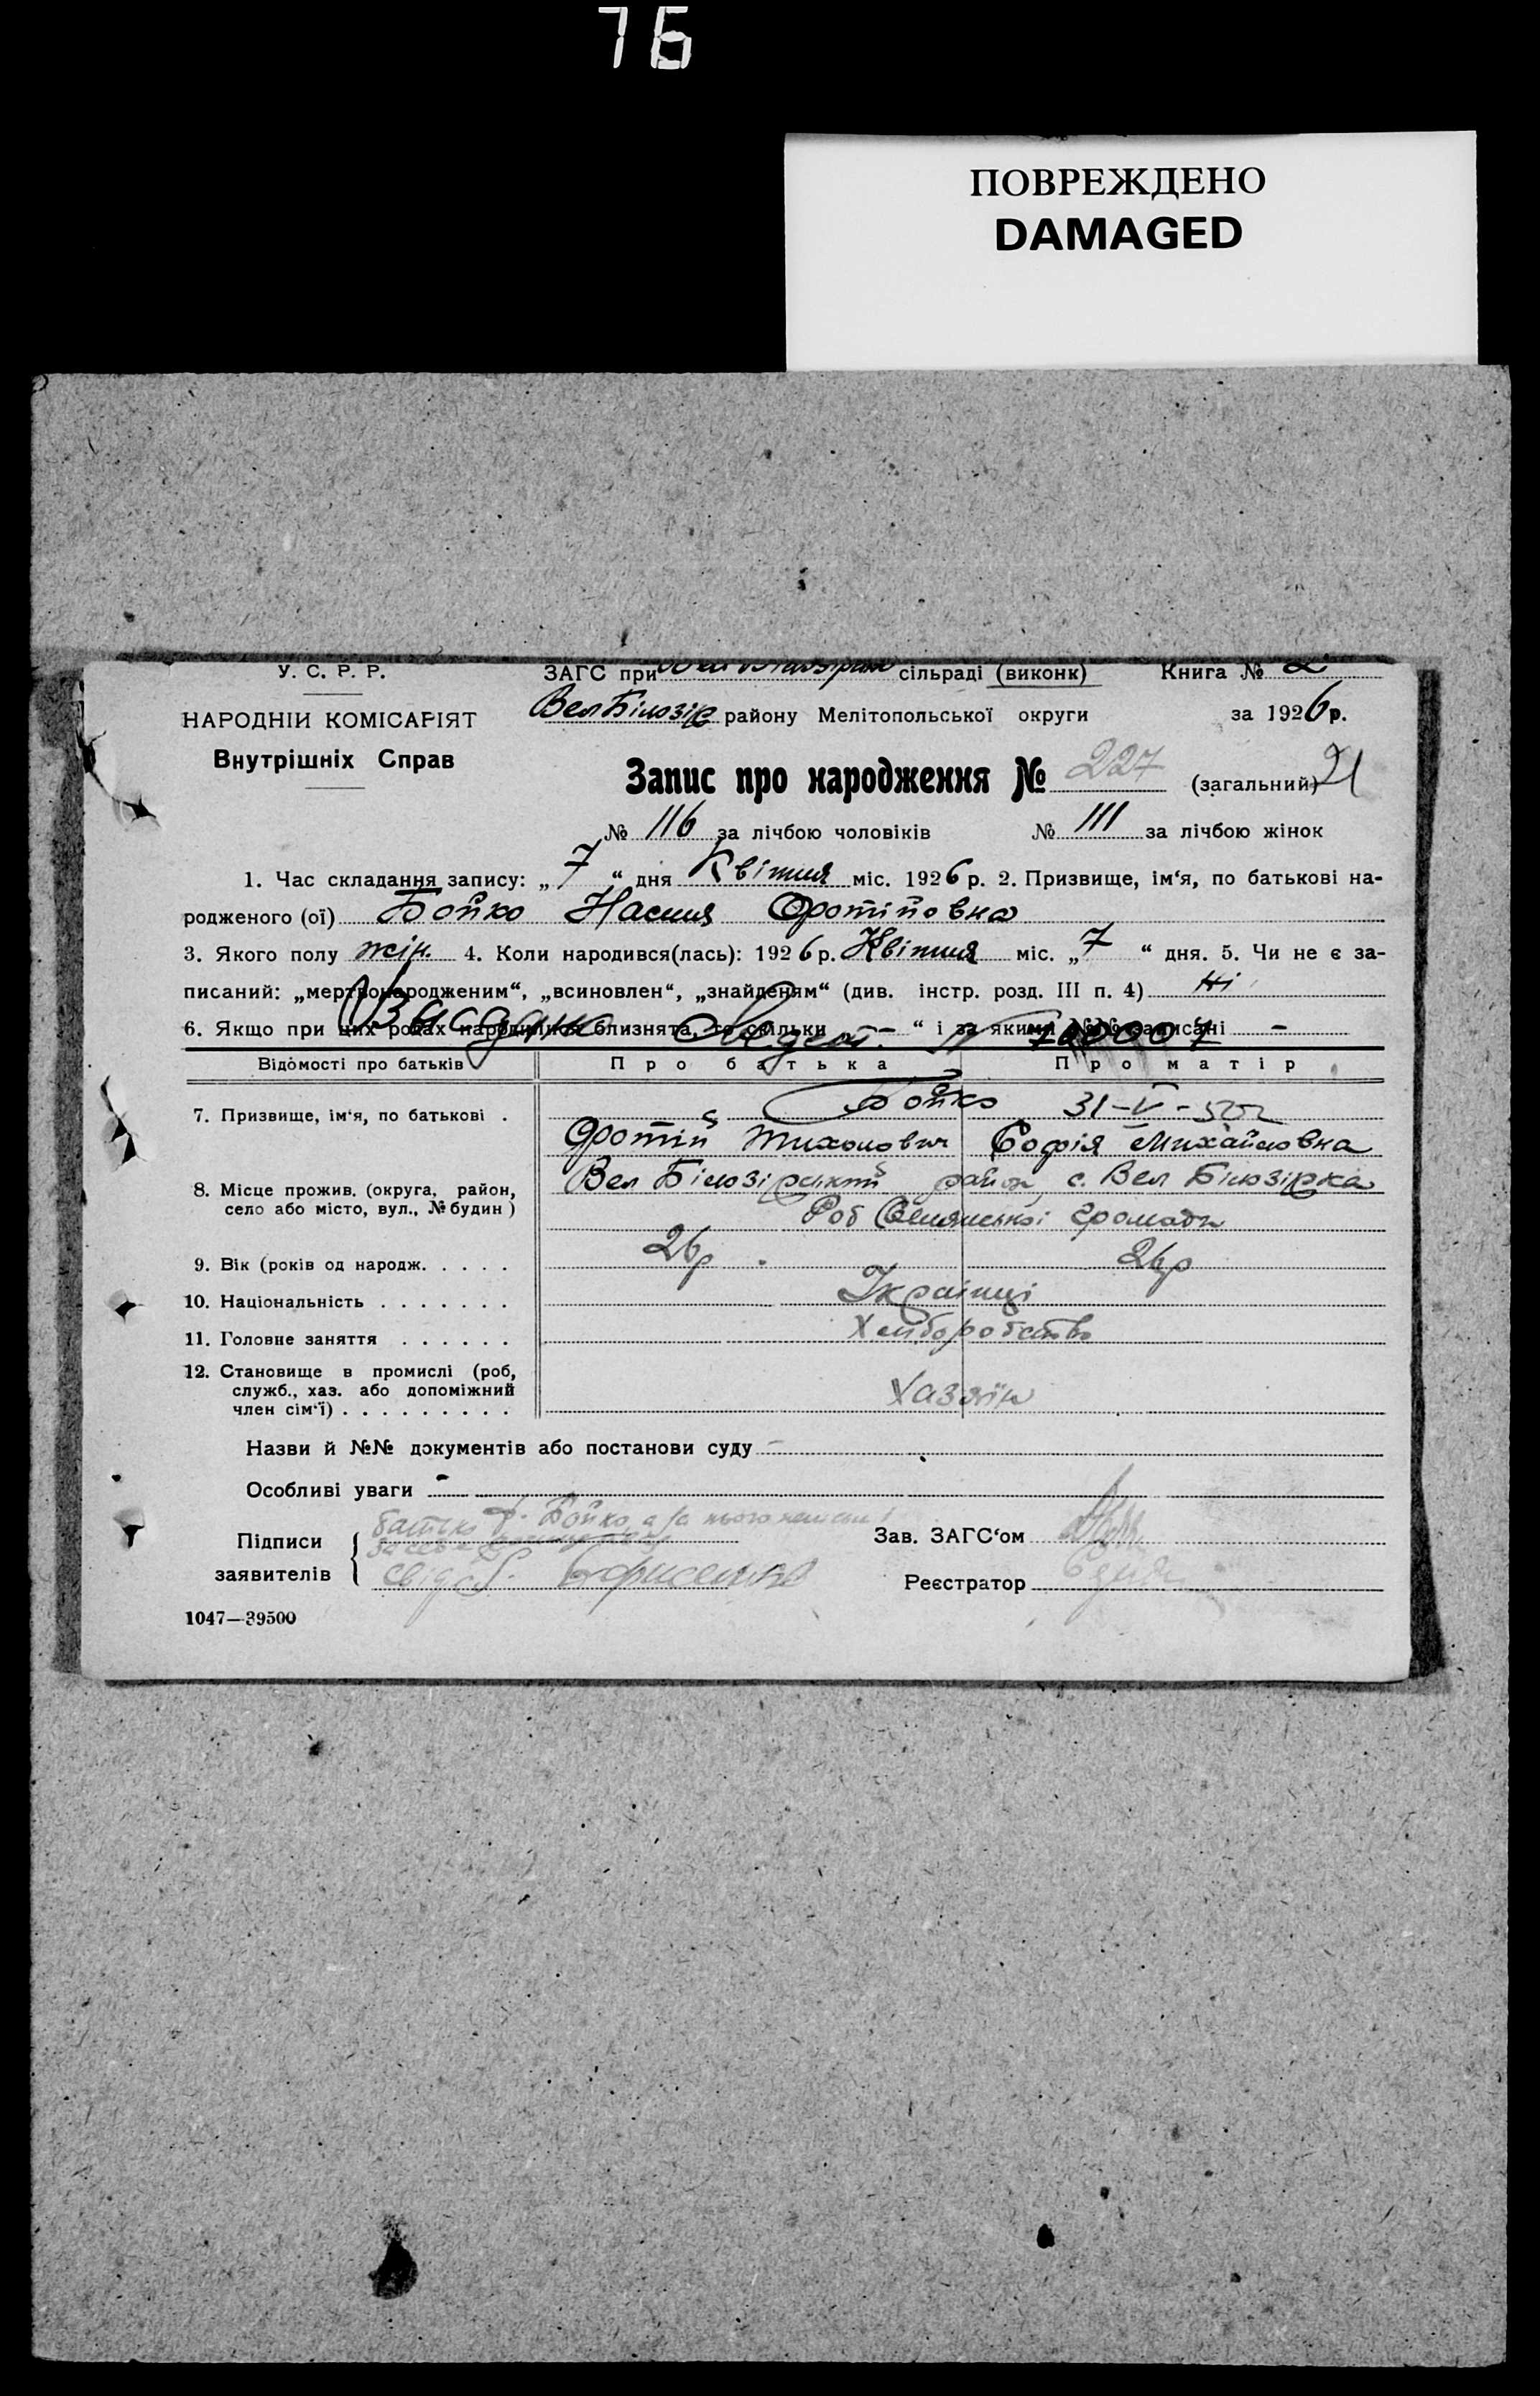 76
ПОВРЕЖДЕНО
DAMAGED
У. С. Р. Р.
НАРОДНІЙ КОМІСАРІЯТ
Внутрішніх Справ
ЗАГС при сільраді (виконк) Книга № 2
Вел Білозір району Мелітопольської округи за 1926 р.
Запис про народження № 227 (загальний) 21
№ 116 за лічбою чоловіків № 111 за лічбою жінок
1. Час складання запису: „ 7 “ дня Квітня міс. 1926 р. 2. Призвище, ім‘я, по батькові на-
родженого (ої) Бойко Насття Фотійовна
3. Якого полу жін. 4. Коли народився(лась): 1926 р. Квітня міс. „ 7 “ дня. 5. Чи не є за-
писаний: „мертвонародженим“, „всиновлен“, „знайденям“ (див. інстр. розд. III п. 4) Ні
6. Якщо при цих родах народилися близнята, то скільки - “ і за якими №№ записані -
Відомості про батьків Про батька Про матір
7. Призвище, ім‘я, по батькові . Бойко 31-V-50г
Фотій Тихонович Софія Михайловна
8. Місце прожив. (округа, район, село або місто, вул., № будин ) Вел Білозірський район, с. Вел Білозірка
громади
9. Вік (років од народж. . . . . 26р 26р
10. Національність . . . . . . . Українці
11. Головне заняття . . . . . . Хліборобство
12. Становище в промислі (роб, служб., хаз. або допоміжний член сім‘ї) . . . . . . . . . Хазяїн
Назви й №№ документів або постанови суду -
Особливі уваги -
Підписи заявителів батько Ф. Бойко, а за нього
Борисенко
Зав. ЗАГС‘ом
Реєстратор
1047—39500